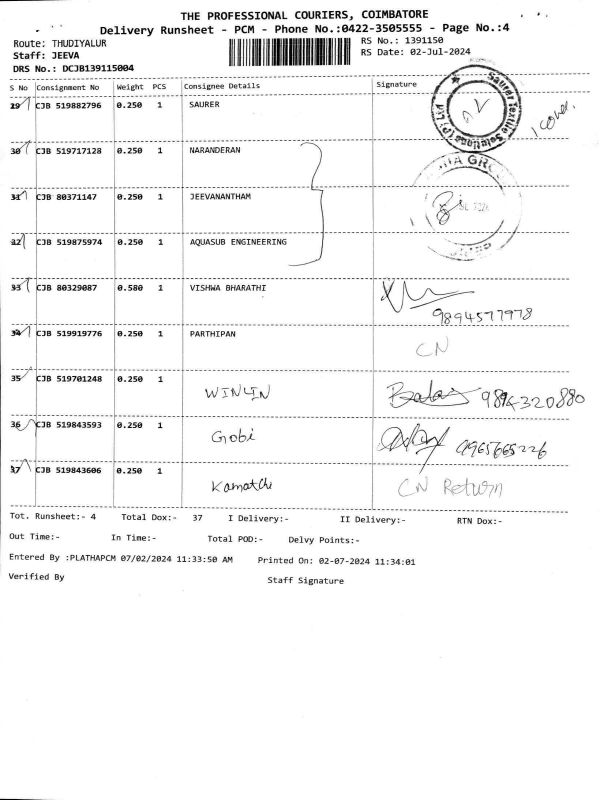 THE PROFESSIONAL COURIERS, COIMBATORE
Delivery Runsheet - PCM - Phone No.:0422-3505555 - Page No.:4
Route: THUDIYALUR
RS No.: 1391150
Staff: JEEVA
RS Date: 02-Jul-2024
DRS No.: DCJB139115004
S No Consignment No Weight PCS Consignee Details Signature
29 CJB 519882796 0.250 1 SAURER
Saurer Textile Solutions (P) Ltd
1 cover.
30 CJB 519717128 0.250 1 NARANDERAN
31 CJB 80371147 0.250 1 JEEVANANTHAM
32 CJB 519875974 0.250 1 AQUASUB ENGINEERING
33 CJB 80329087 0.580 1 VISHWA BHARATHI
9894577978
34 CJB 519919776 0.250 1 PARTHIPAN
CN
35 CJB 519701248 0.250 1 WINLIN 9894320880
36 CJB 519843593 0.250 1 Gobi 9965665226
37 CJB 519843606 0.250 1 Kamatchi CN Return
Tot. Runsheet:- 4 Total Dox:- 37 I Delivery:- II Delivery:- RTN Dox:-
Out Time:- In Time:- Total POD:- Delvy Points:-
Entered By :PLATHAPCM 07/02/2024 11:33:50 AM Printed On: 02-07-2024 11:34:01
Verified By Staff Signature